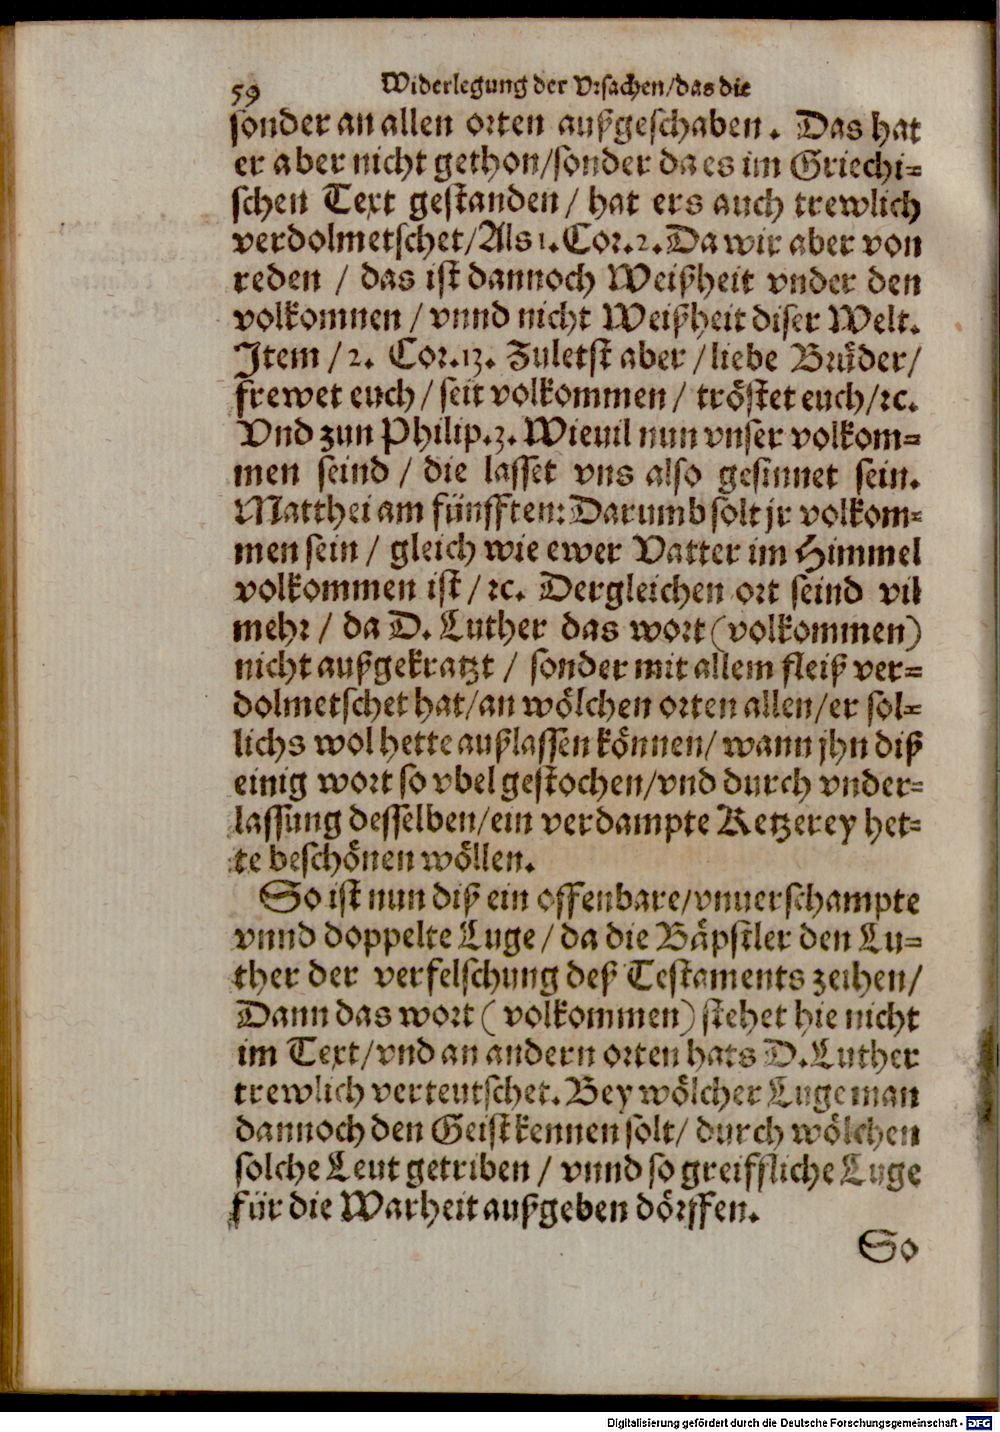 59 Widerlegung der Vrsachen/das die
sonder an allen orten außgeschaben. Das hat
er aber nicht gethon/sonder da es im Griechi=
schen Text gestanden / hat ers auch trewlich
verdolmetschet/Als 1. Cor. 2. Da wir aber von
reden / das ist dannoch Weißheit vnder den
volkomnen / vnnd nicht Weißheit diser Welt.
Item / 2. Cor. 13. Zuletst aber / liebe Brüder/
frewet euch / seit volkommen / tröstet euch/ꝛc.
Vnd zun Philip. 3. Wieuil nun vnser volkom=
men seind / die lasset vns also gesinnet sein.
Matthei am fünfften: Darumb solt jr volkom=
men sein / gleich wie ewer Vatter im Himmel
volkommen ist / ꝛc. Dergleichen ort seind vil
mehr / da D. Luther das wort (volkommen)
nicht außgekratzt / sonder mit allem fleiß ver=
dolmetschet hat/an wölchen orten allen/er sol=
lichs wol hette außlassen können/ wann jhn diß
einig wort so vbel gestochen/vnd durch vnder=
lassung desselben/ein verdampte Ketzerey het=
te beschönen wöllen.
So ist nun diß ein offenbare/vnuerschampte
vnnd doppelte Luge / da die Bäpstler den Lu=
ther der verfelschung deß Testaments zeihen/
Dann das wort ( volkommen) stehet hie nicht
im Text/vnd an andern orten hats D. Luther
trewlich verteutschet. Bey wölcher Luge man
dannoch den Geist kennen solt/ durch wölchen
solche Leut getriben / vnnd so greiffliche Luge
für die Warheit außgeben dörffen.
So
Digitalisierung gefördert durch die Deutsche Forschungsgemeinschaft - DFG